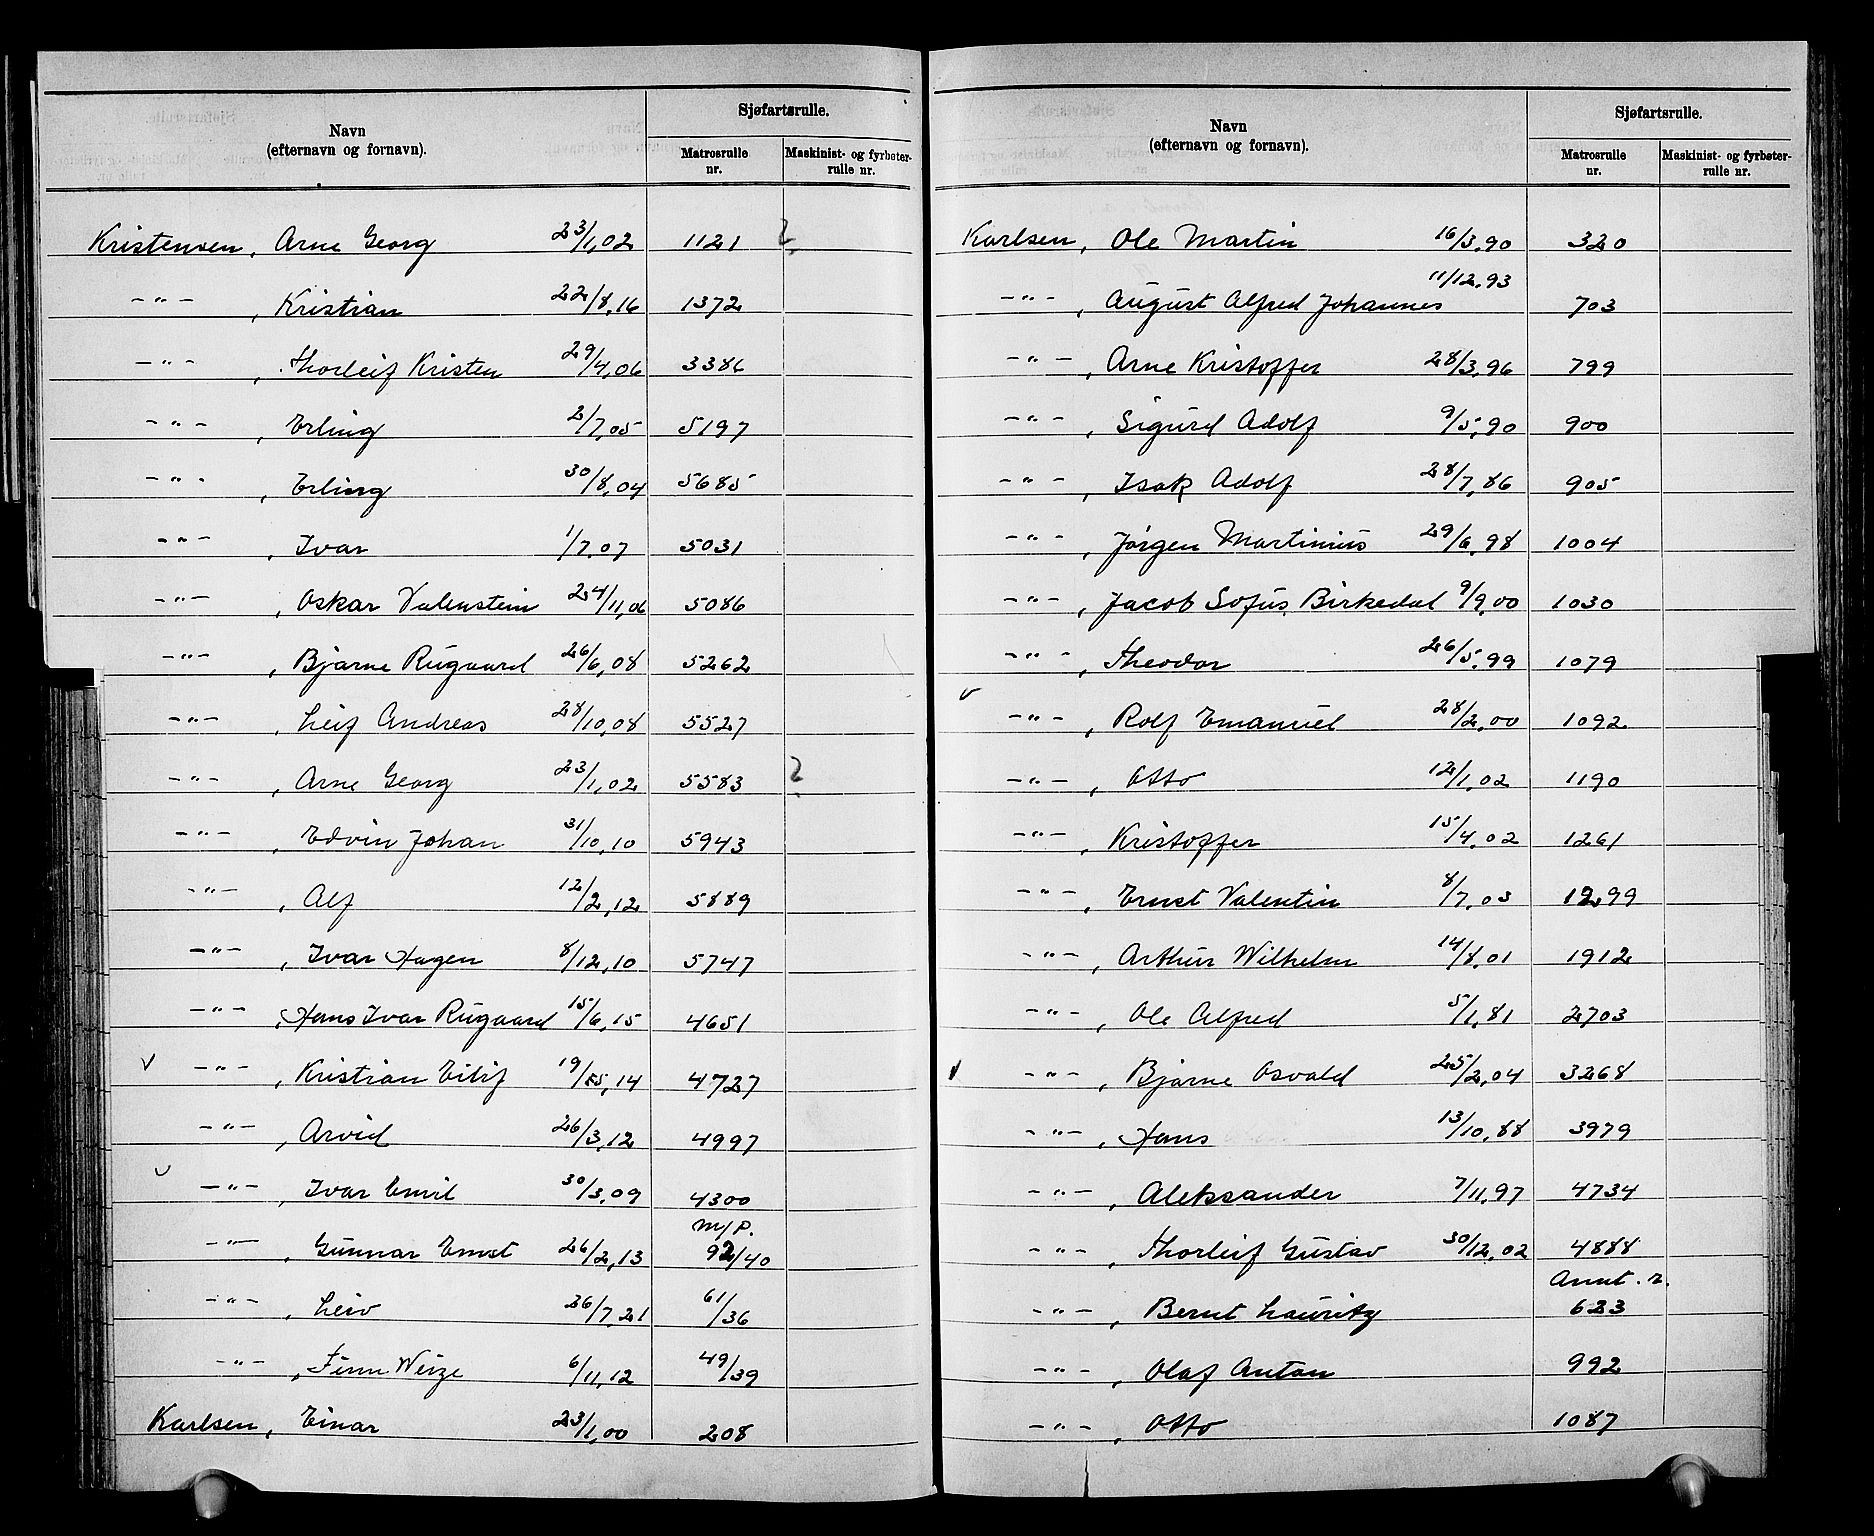 Navn
(efternavn og fornavn).
Sjøfartsrulle.
Matrosrulle nr.
Maskinist- og fyrbøter-rulle nr.
Kristensen, Arne Georg 23/1,02 1121 ?
-"- , Kristian 22/8,16 1372
-"- , Thorleif Kristen 29/4,06 3386
-"- , Erling 2/7,05 5197
-"- , Erling 30/8,04 5685
-"- , Ivar 1/7.07 5031
-"- , Oskar Valenstein 24/11,06 5086
-"- , Bjarne Rugaard 26/6,08 5262
-"- , Leif Andreas 28/10,08 5527
-"- , Arne Georg 23/1,02 5583 ?
-"- , Edvin Johan 31/10,10 5943
-"- , Alf 12/2,12 5889
-"- , Ivar Hagen 8/12,10 5747
-"- , Hans Ivar Rugaard 15/6,15 4651
v -"- , Kristian Eilif 19/5,14 4727
-"- , Arvid 26/3,12 4997
v -"- , Ivar Emil 30/3,09 4300
-"- , Gunnar Ernst 26/2,13 m/p. 92/40
-"- , Leiv 26/7,21 61/36
-"- , Finn Weize 6/11,12 49/39
Karlsen, Einar 23/1,00 208
Navn
(efternavn og fornavn).
Sjøfartsrulle.
Matrosrulle nr.
Maskinist- og fyrbøter-rulle nr.
Karlsen, Ole Martin 16/3,90 320
-"- , August Alfred Johannes 11/12,93 703
-"- , Arne Kristoffer 28/3,96 799
-"- , Sigurd Adolf 9/5,90 900
-"- , Isak Adolf 28/7,86 905
-"- , Jørgen Martinius 29/6,98 1004
-"- , Jacob Sofus Birkedal 9/9,00 1030
-"- , Theodor 26/5,99 1079
v -"- , Rolf Emanuel 28/2,00 1092
-"- , Otto 12/1,02 1190
-"- , Kristoffer 15/4,02 1261
-"- , Ernst Valentin 8/7,03 1299
-"- , Arthur Wilhelm 14/8,01 1912
-"- , Ole Alfred 5/1,81 2703
v -"- , Bjarne Osvald 25/2,04 3268
-"- , Hans 13/10,88 3979
-"- , Aleksander 7/11,97 4734
-"- , Thorleif Gustav 30/12,02 4888
-"- , Bernt Lauritz Annt. r. 623
-"- , Olaf Anton 992
-"- , Otto 1087